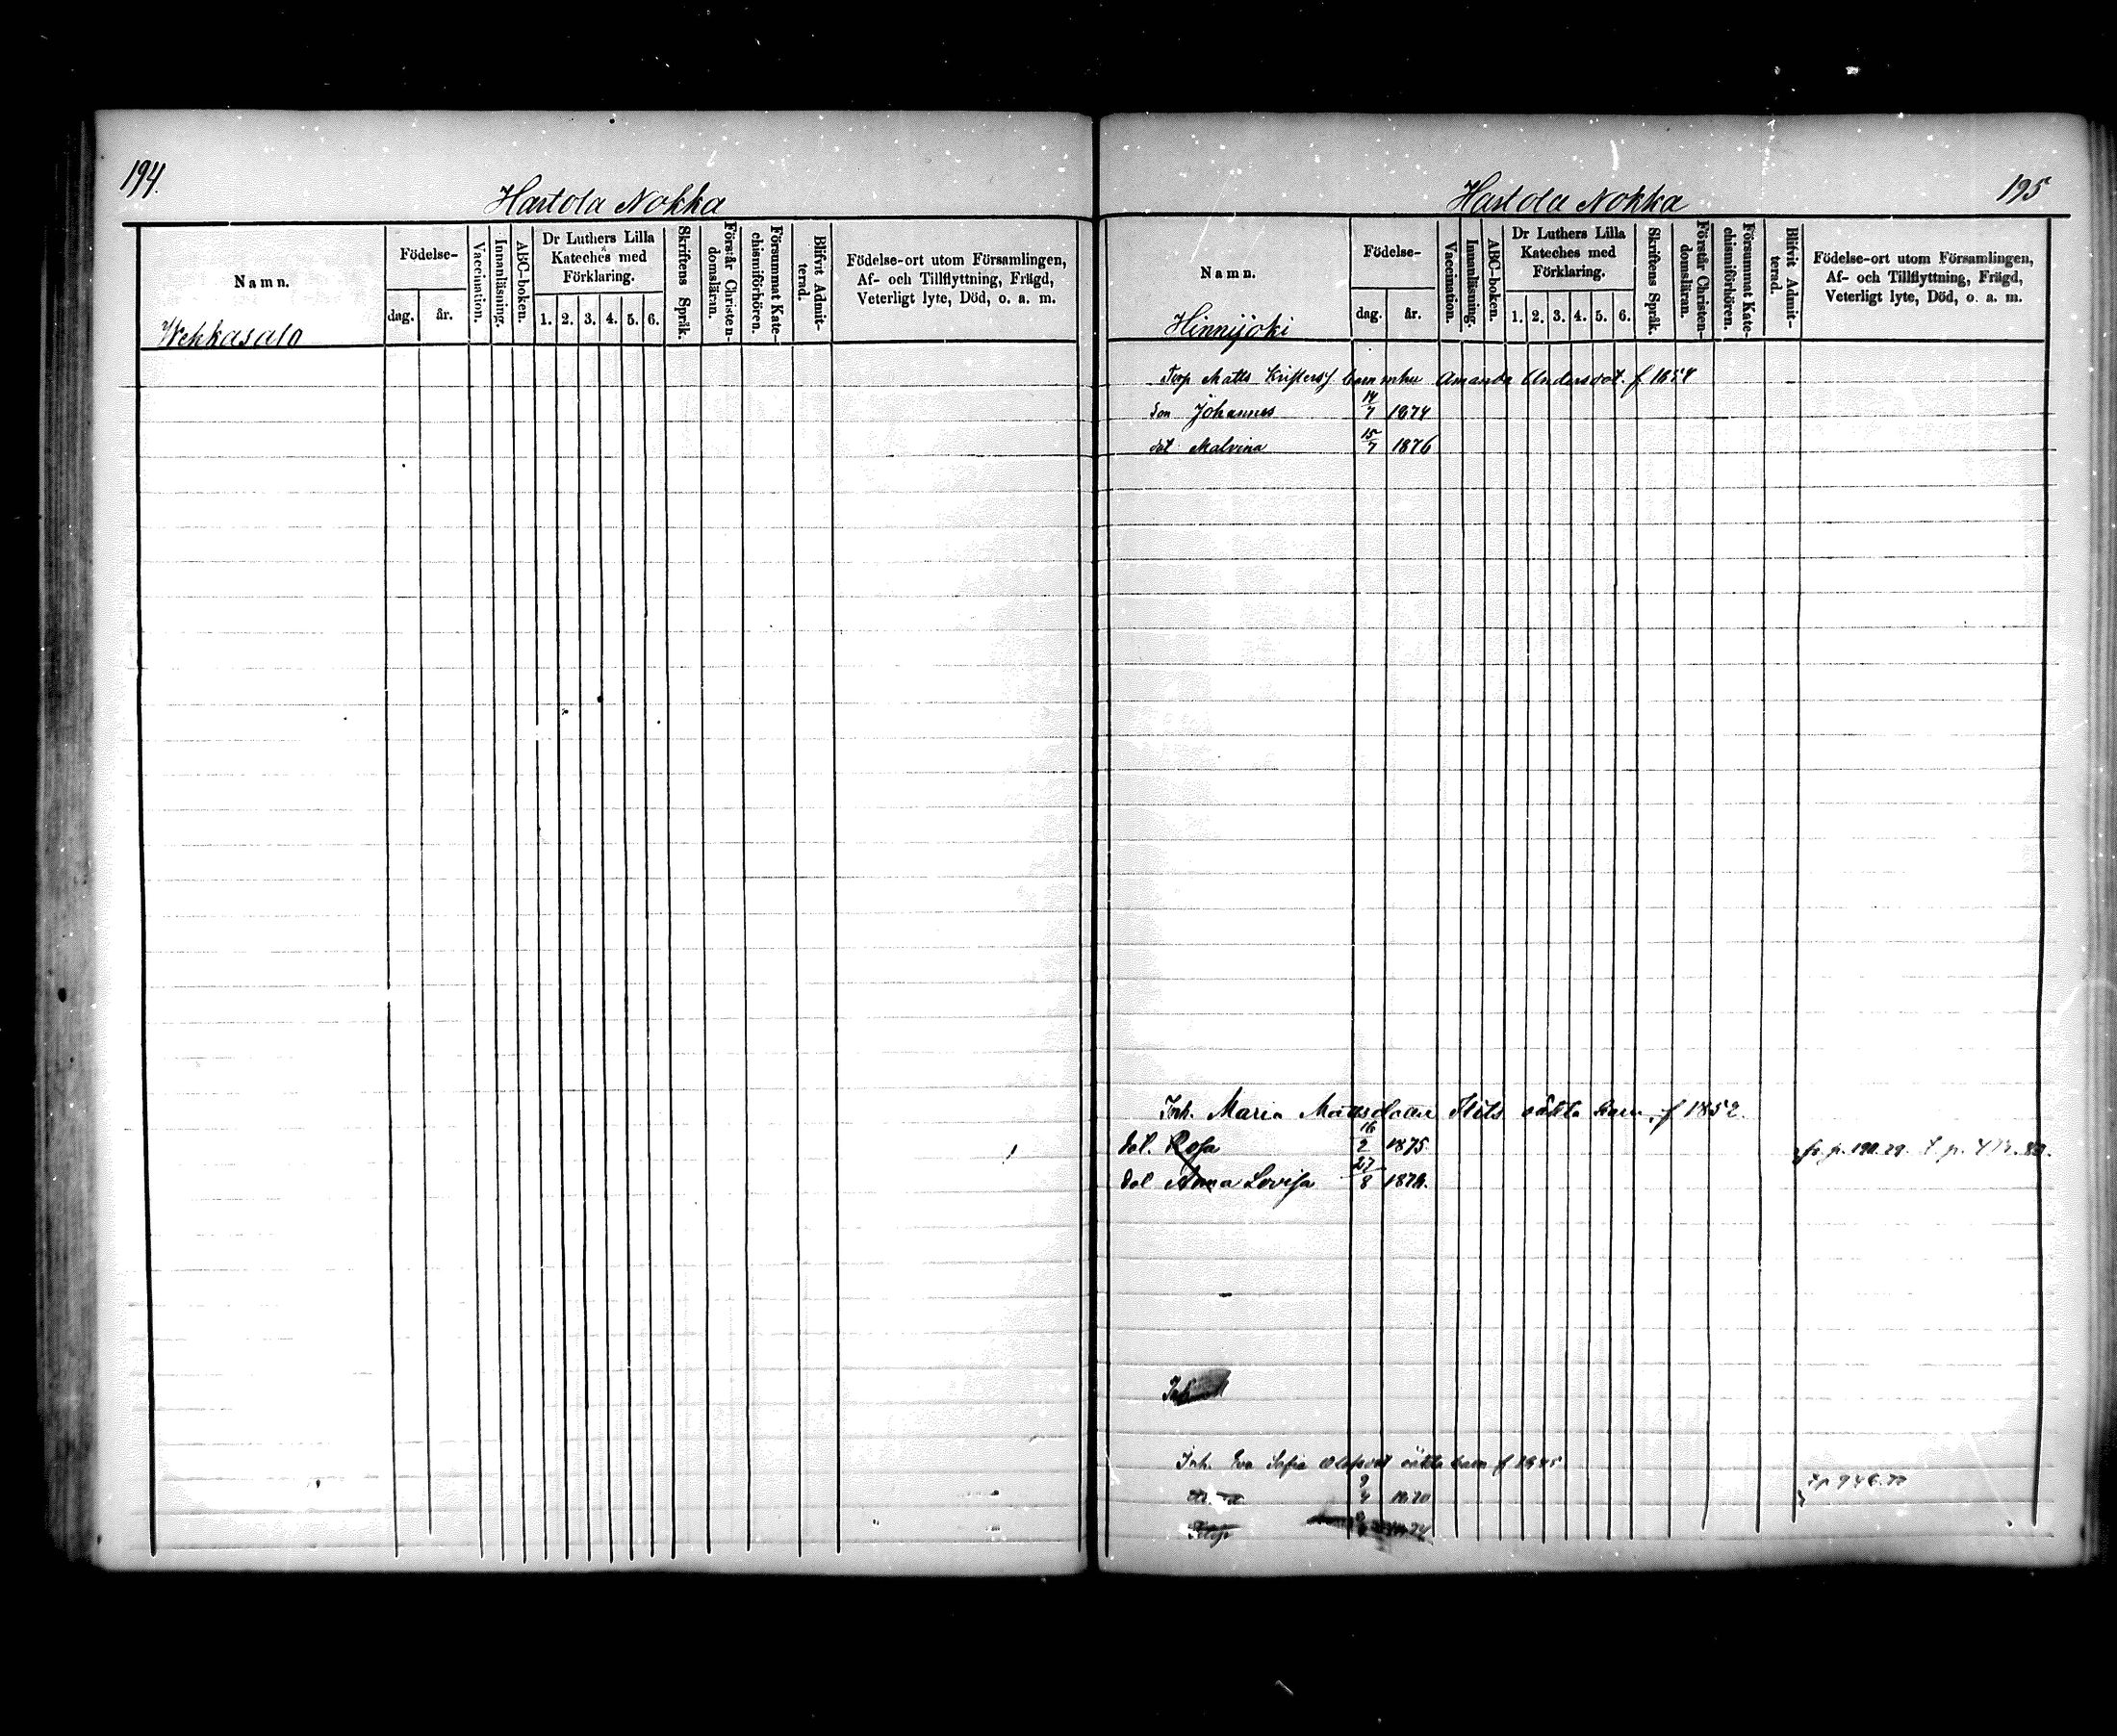 194.
Hartola Nokka
Namn.
Födelse-
dag.
år.
Vaccination.
Innanläsning.
ABC-boken.
Dr Luthers Lilla
Kateches med
Förklaring.
1. 2. 3. 4. 5. 6.
Skriftens Språk.
Förstår Christen-
domsläran.
Försummat Kate-
chismiförhören.
Blifvit Admit-
terad.
Födelse-ort utom Församlingen,
Af- och Tillflyttning, Frägd,
Veterligt lyte, Död, o. a. m.
Wekkasalo
195
Hartola Nokka
Namn.
Födelse-
dag.
år.
Vaccination.
Innanläsning.
ABC-boken.
Dr Luthers Lilla
Kateches med
Förklaring.
1. 2. 3. 4. 5. 6.
Skriftens Språk.
Förstår Christen-
domsläran.
Försummat Kate-
chismiförhören.
Blifvit Admit-
terad.
Födelse-ort utom Församlingen,
Af- och Tillflyttning, Frägd,
Veterligt lyte, Död, o. a. m.
Hinnijoki
Torp Matts Kristerss barn m hu Amanda Andersdot. f
son Johannes 14/7 1874
dot Malvina 15/7 1876
Inh. Maria Mattsdotter oäkta barn f 1852.
dot. Rosa 16/2 1875.
dot Anna Lovisa 27/8
Inh. Eva Sofia Olofsdot oäkta barn f 1845
9/4 1870